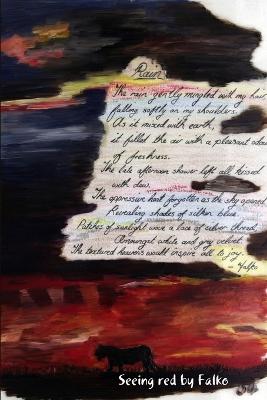 Rain
The rain gently mingled with my hair
falling softly on my shoulders.
As it mixed with earth,
it filled the air with a pleasant odour
of freshness.
The late afternoon shower left all kissed
with dew.
The oppression best forgotten as the sky opened
Revealing shades of silken blue.
Patches of sunlight wove a lace of silver thread,
Amongst white and grey velvet.
The textured heavens would inspire all to joy.
- Falko
Seeing red by Falko